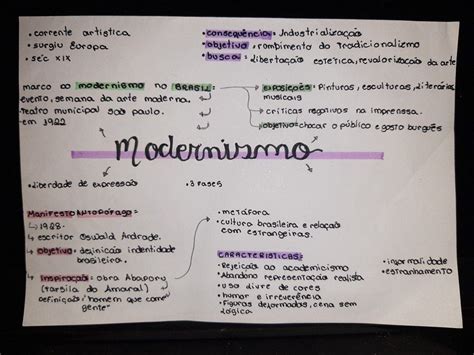 • corrente artística
• surgiu Europa
• séc XIX
• consequência: Industrialização
• objetivo: rompimento do Tradicionalismo
• busca: libertação estética, revalorização da arte
marco do modernismo no BRASIL:
evento, semana da arte moderna.
Teatro municipal são paulo.
- em 1922
exposições: Pinturas, esculturas, literárias
musicais
críticas negativas na imprenssa.
objetivo: chocar o público e gosto burguês
Modernismo
• liberdade de expressão
• 3 fases
Manifesto Antropófago:
1928.
escritor Oswald Andrade.
objetivo: definição indentidade
brasileira.
Inspiração: obra Abapory
(tarsila do Amaral)
Definição: "homem que come
gente"
• metáfora
• cultura brasileira e relação
com estrangeiras.
CARACTERÍSTICAS:
• Rejeição ao academicismo
• Abandono representação realista
• uso livre de cores
• humor e irreverência
• Figuras deformadas, cena sem
lógica
• informalidade
• estranhamento